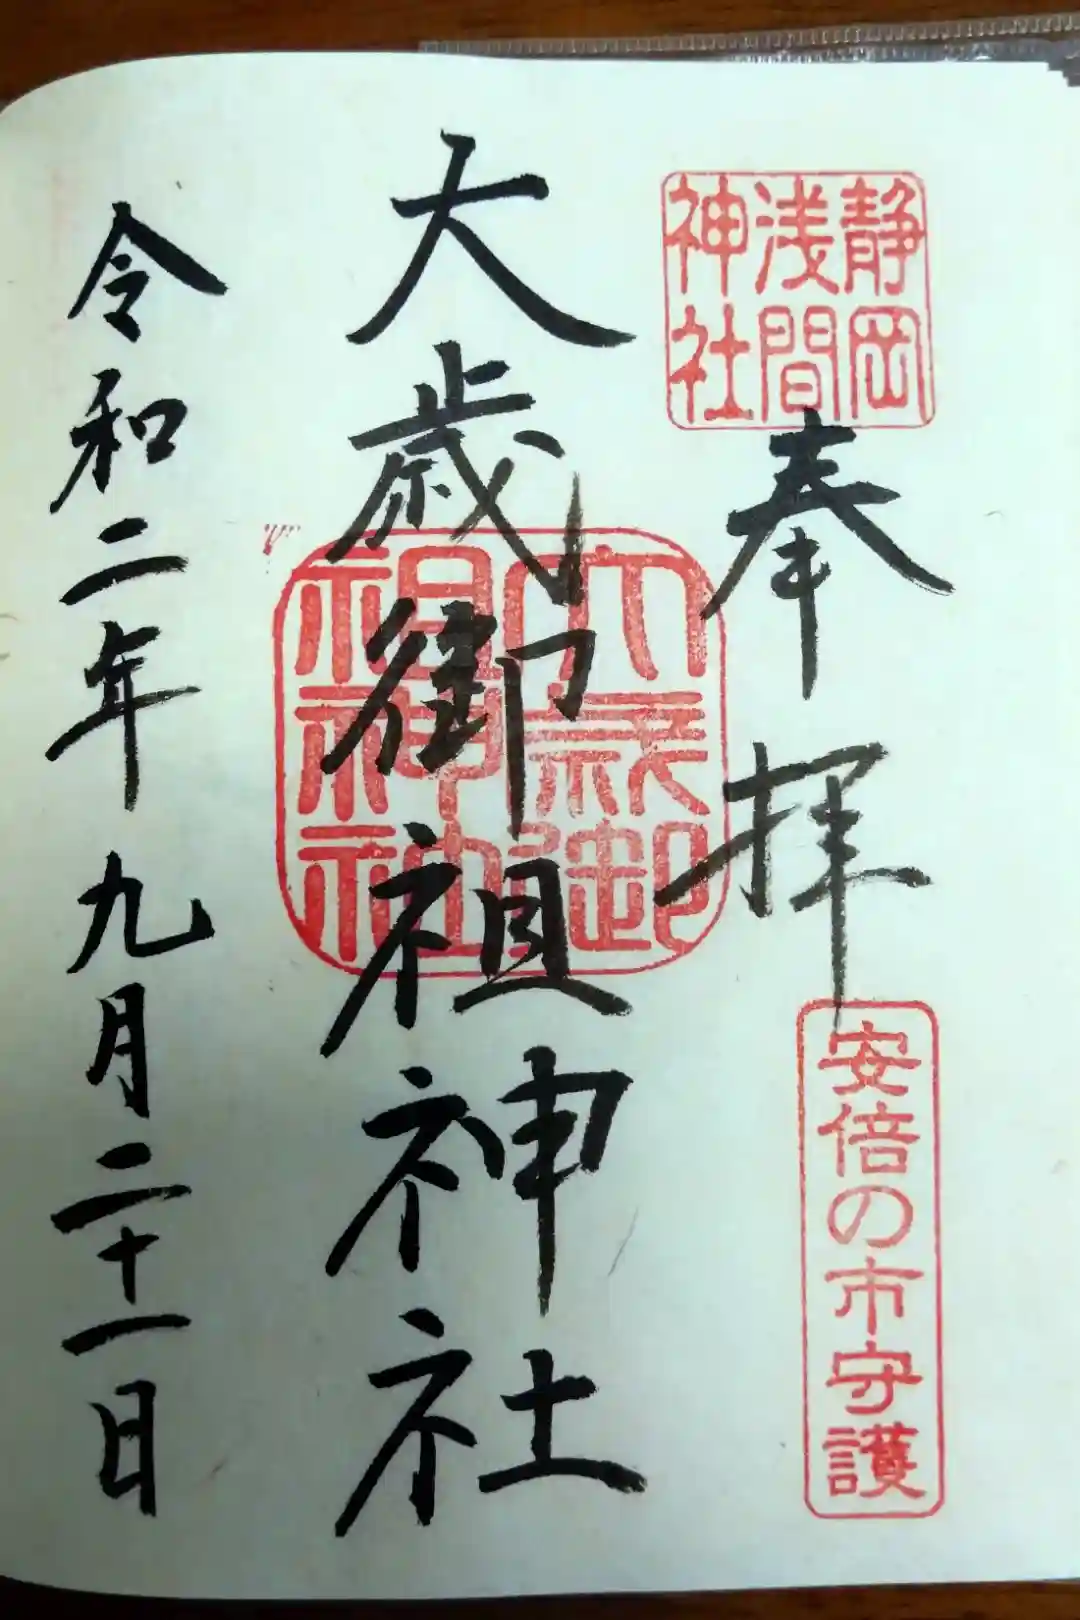 静岡
浅間
神社
奉拝
安倍の市守護
大歳御祖神社
大歳御
祖神社
令和二年九月二十一日